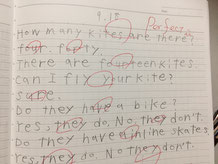 9.18
Perfect
How many kites are there?
four. forty.
There are fourteen kites.
can I fly your kite?
sure.
Do they have a bike?
Yes, they do. No, they don't.
Do they have inline skates?
Yes, they do. No they don't.